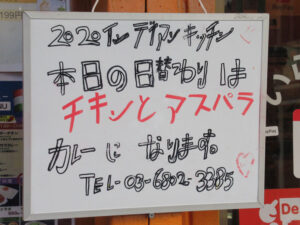 2020インディアンキッチン
本日の日替わりは
チキンとアスパラ
カレーになります
TEL-03-6802-3385